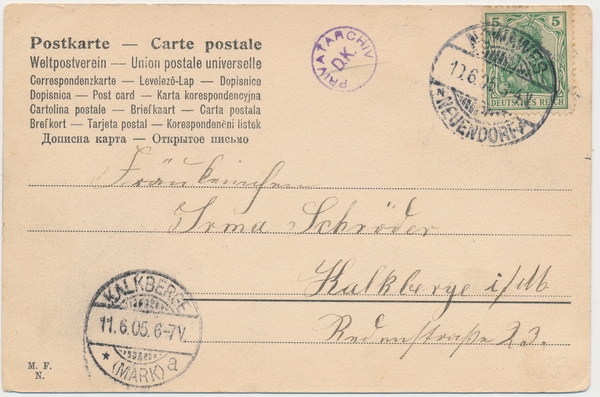 Postkarte — Carte postale
Weltpostverein — Union postale universelle
Correspondenzkarte — Levelező-Lap — Dopisnice
Dopisnica — Post card — Karta korespondencyjna
Cartolina postale — Briefkaart — Carta postala
Brefkort — Tarjeta postal — Korespondenčni listek
Дописна карта — Открытое письмо
PRIVATARCHIV
D.K.
NOWAWES
10.6.05.
NEUENDORF
5 5
DEUTSCHES REICH
Irma Schröder
Kalkberge i/M.
Redenstraße 23.
KALKBERGE
11.6.05. 6-7V.
* (MARK) a
M. F.
N.